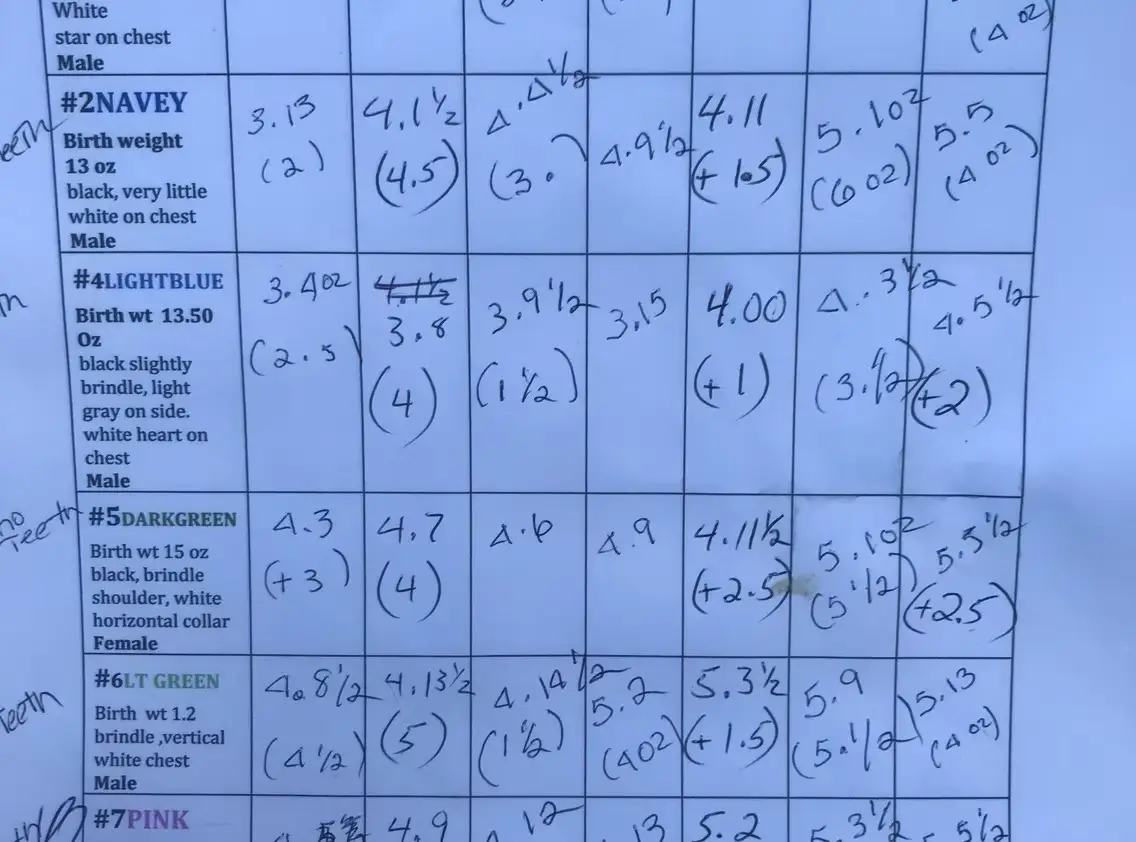 White
star on chest
Male
(4 oz)
#2NAVEY
Birth weight
13 oz
black, very little
white on chest
Male
3.13
(2)
4.1 ½
(4.5)
4.4 ½
(3.
4.9 ½
4.11
(+ 1.5)
5.10z
(6 oz)
5.5
(4 oz)
#4LIGHTBLUE
Birth wt 13.50
Oz
black slightly
brindle, light
gray on side.
white heart on
chest
Male
3.4oz
(2.5)
4.1½
3.8
(4)
3.9 ½
(1 ½)
3.15
4.00
(+ 1)
4.3 ½
(3.½)
4.5 ½
(+2)
no
Teeth
#5DARKGREEN
Birth wt 15 oz
black, brindle
shoulder, white
horizontal collar
Female
4.3
(+3)
4.7
(4)
4.6
4.9
4.11½
(+2.5)
5.10z
(5 ½)
5.5 ½
(+2.5)
Teeth
#6LT GREEN
Birth wt 1.2
brindle ,vertical
white chest
Male
4.8 ½
(4 ½)
4.13 ½
(5)
4.14 ½
(1 ½)
5.2
(4oz)
5.3 ½
(+ 1.5)
5.9
(5.½)
5.13
(4 oz)
#7PINK
4.9
12
13
5.2
5.3 ½
5 ½